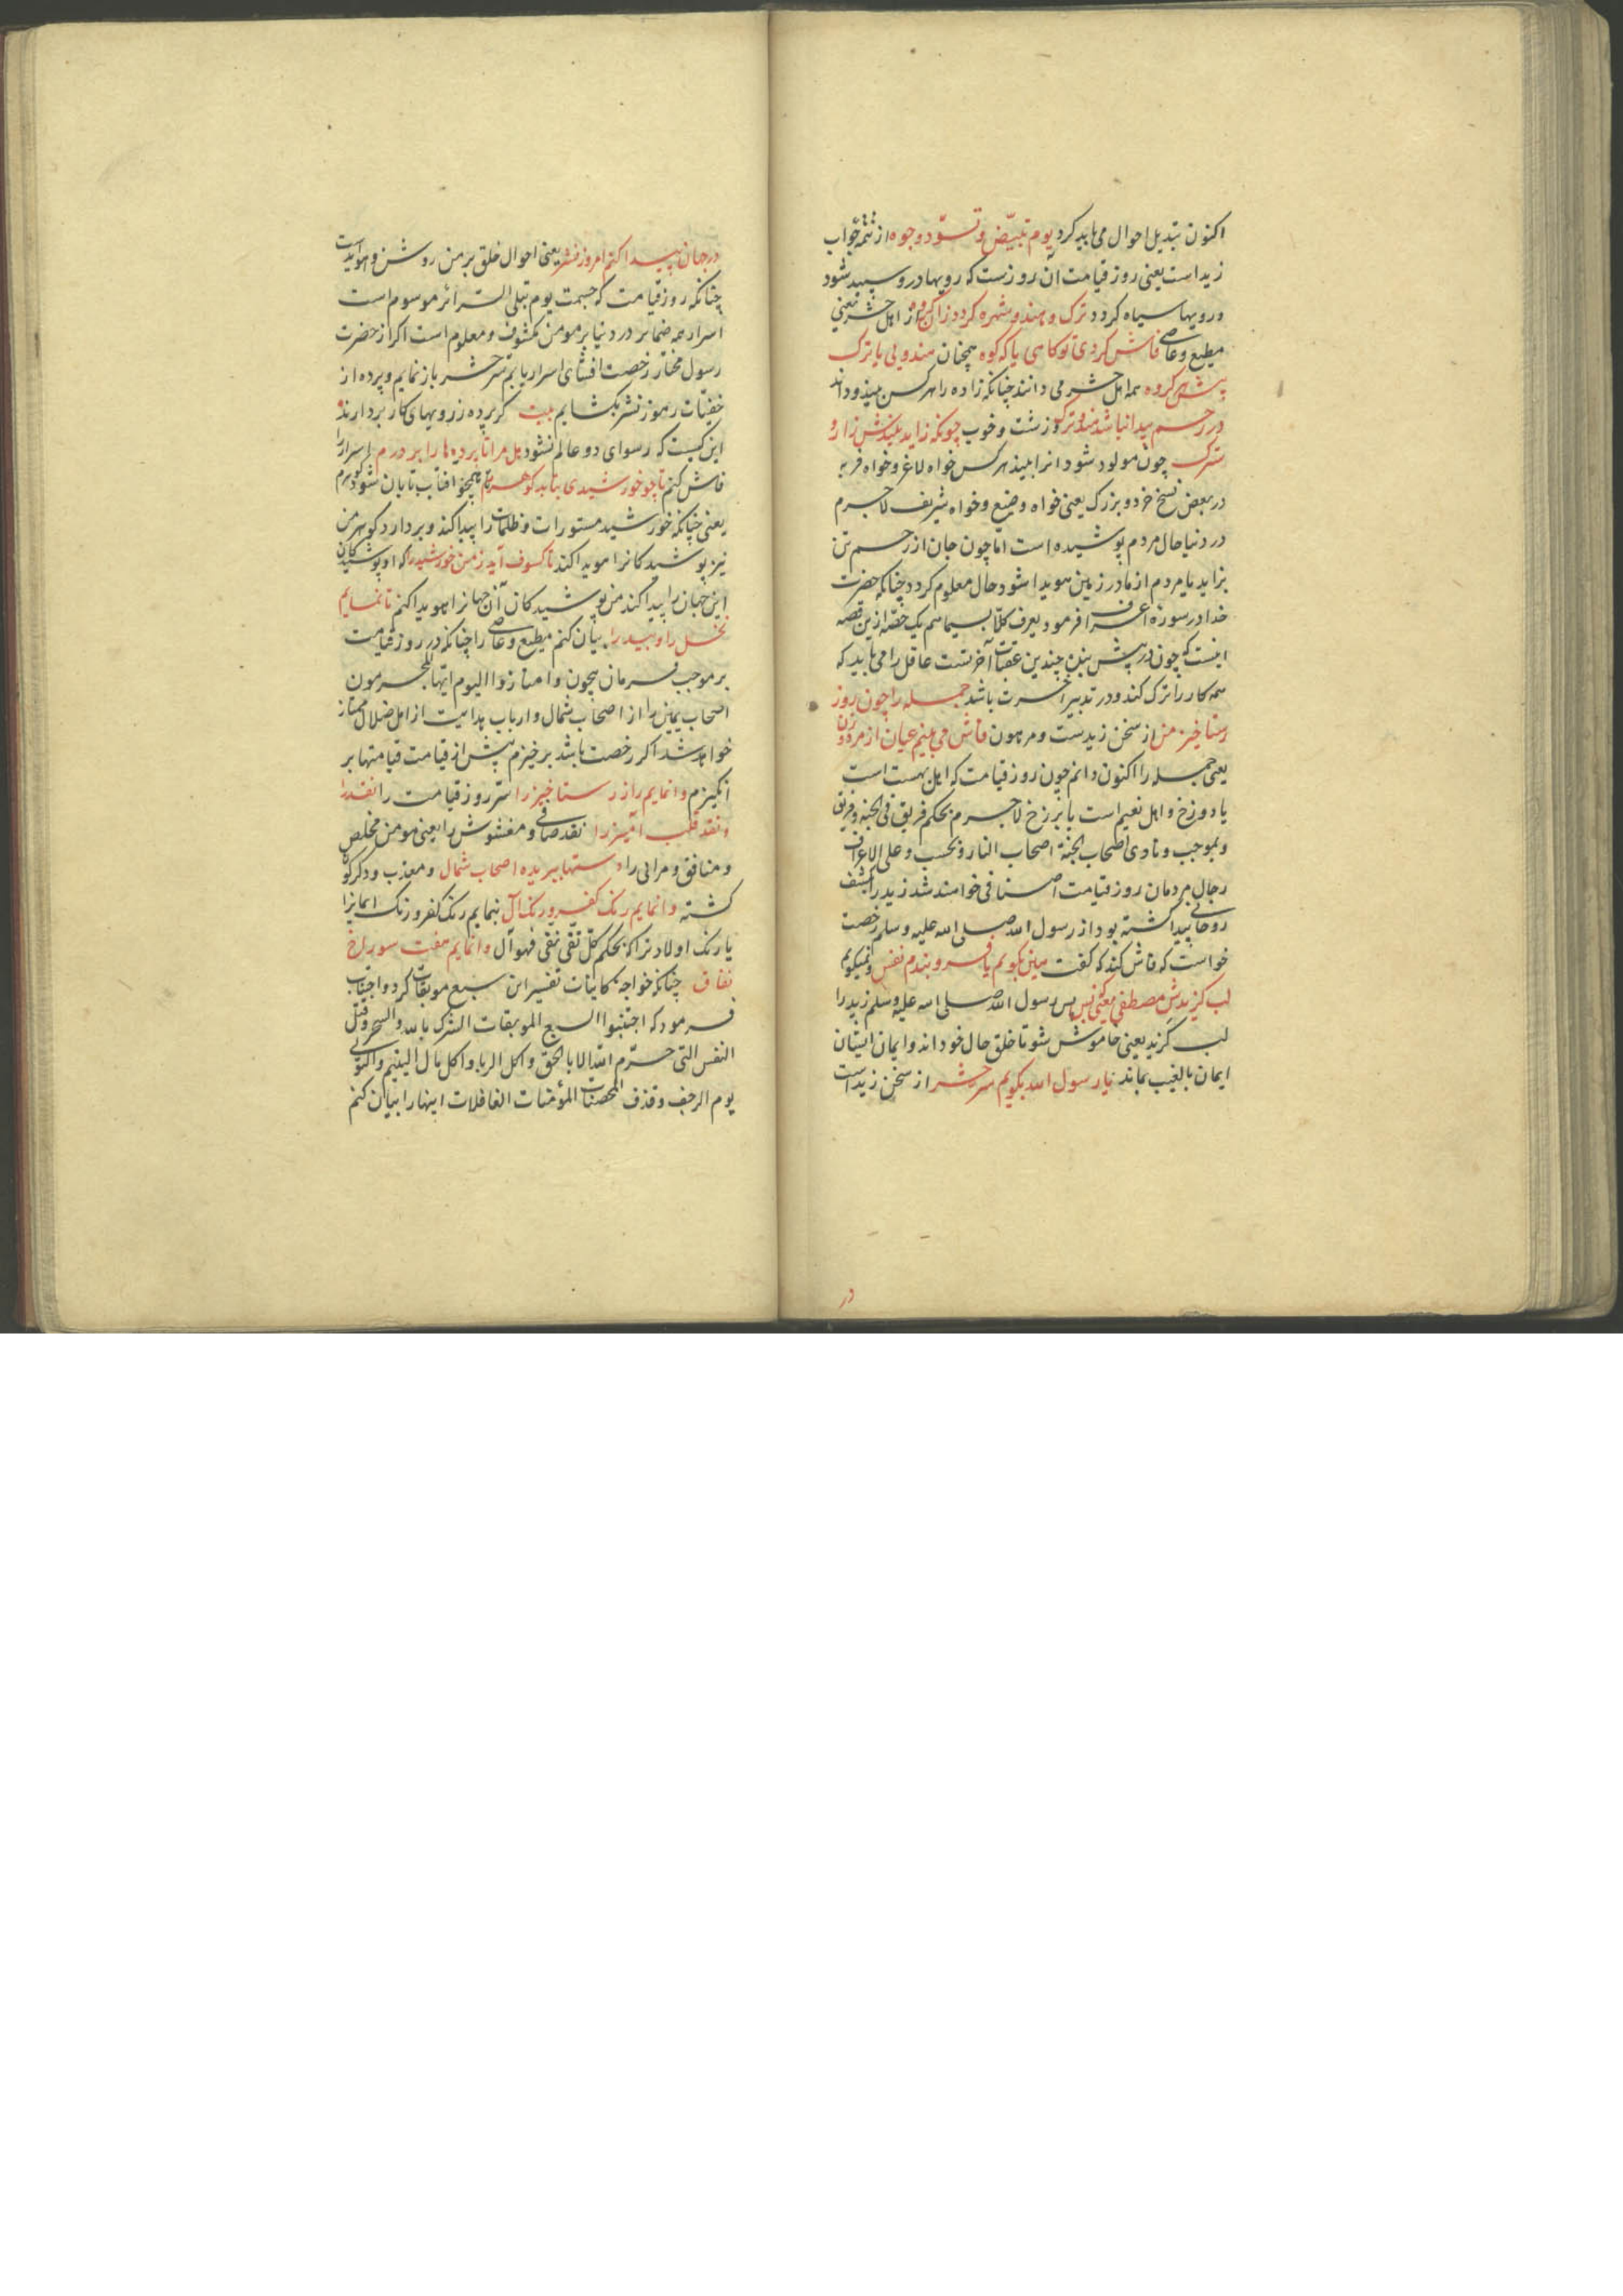 اکنون تبدیل احوال می باید کرد یوم تبیضّ و تسوّد وجوه از تتمّهٔ جواب
زید است یعنی روز قیامت آن روزست که رویها درو سپید شود
و رویها سیاه کردد ترک و هندو شهره کردد زان کروه از اهل حشر یعنی
مطیع و عاصی فاش کردی تو کاهی یا که کوه همچنان هندویی یا ترک
پیش هر کروه همه اهل حشر می دانند چنانکه زاده را هر کس بیند و داند
در رحم پیدا نباشد هند و ترک و زشت و خوب چونکه زاید بیندش زار و
سترک چون مولود شود انرا بیند هر کس خواه لاغر و خواه فربه
در بعض نسخ خرد و بزرک یعنی خواه وضیع و خواه شریف لاجرم
در دنیا حال مردم پوشیده است امّا چون جان از رحم تن
بزاید یا مردم از مادر زمین هویدا شود حال معلوم کردد چنانکه حضرت
خدا در سورهٔ اعراف فرمود یعرف کلّا بسیماهم یک حصّه ازین قصّه
اینست که چون در پیش بین چندین عقبات آخرتست عاقل را می باید که
همه کار را ترک کند و در تدبیر آخرت باشد جمله را چون روز
رستاخیز من از سخن زیدست و مرهون فاش می بینم عیان از مرد و زن
یعنی جمله را اکنون دانم چون روز قیامت که اهل بهست است
یا دوزخ و اهل نعیم است یا برزخ لاجرم بحکم فریق فی الجنة و فریق
و بموجب و نادی اصحاب الجنّة اصحاب النار و بحسب و علی الاعراف
رجال مردمان روز قیامت اصنافی خواهند شد زید را بکشف
روحانی پیدا کشته بود از رسول الله صلی الله علیه و سلم رخصت
خواست که فاش کند که کفت هین بکویم یا فرو بندم نفس و نمیکویم
لب کزیدش مصطفی یعنی بس پس رسول الله صلی الله علیه و سلم زید را
لب کزید یعنی خاموش شو تا خلق حال خود اند و ایمان ایشان
ایمان بالغیب بماند یا رسول الله بکویم سرّ حشر از سخن زیدست
در
در جهان پیدا کنم امروز نشر یعنی احوال خلق بر من روشن و هویداست
چنانکه روز قیامت که بسمت یوم تبلی السّرائر موسوم است
اسرار همه ضمایر در دنیا بر مومن مکشوف و معلوم است اکر از حضرت
رسول مختار رخصت افشای اسرار یابم سرّ حشر باز نمایم و پرده از
خفیّات رموز نشر بکشایم بیت کر پرده ز رویهای کار بردارند
این کیست که رسوای دو عالم نشود هل مرا تا پرده ها را بر درم اسرار را
فاش کنم تا چو خورشیدی بتابد کوهرم همچو افتاب تابان شود کوهرم
یعنی چنانکه خورشید مستورات و ظلمات را پیدا کند و بردارد کوهر من
نیز پوشیدکانرا هویدا کند تا کسوف آید ز من خورشید را که او پوشیدکان
این جهان را پیدا کند من پوشیدکان آن جهانرا هویدا کنم تا نمایم
نخل را و بید را بیان کنم مطیع و عاصی را چنانکه در روز قیامت
بر موجب فرمان بیچون و امتازوا الیوم ایّها المجرمون
اصحاب یمین را از اصحاب شمال و ارباب هدایت از اهل ضلال ممتاز
خواهد شد اکر رخصت باشد برخیزم پیش از قیامت قیامتها بر
انکیزم وا نمایم راز رستاخیز را سرّ روز قیامت را نقد را
و نقد قلب آمیز را نقد صافی و مغشوش را یعنی مومن مخلص
و منافق و مرائی را دستها ببریده اصحاب شمال و معذب و دکرکون
کشته وا نمایم رنک کفر و رنک آل بنمایم رنک کفر و رنک ایمانرا
یا رنک اولاد ترا که بحکم کلّ تقی نقی فهو آل وا نمایم هفت سوراخ
نفاق چنانکه خواجهٔ کاینات تفسیر این سبع موبقات کرد و اجتناب
فرمود که اجتنبوا السبع الموبقات الشرک بالله و السحر و قتل
النفس التی حرّم الله الا بالحق و اکل الربا و اکل مال الیتیم و التولی
یوم الزحف و قذف المحصنات المؤمنات الغافلات اینها را بیان کنم